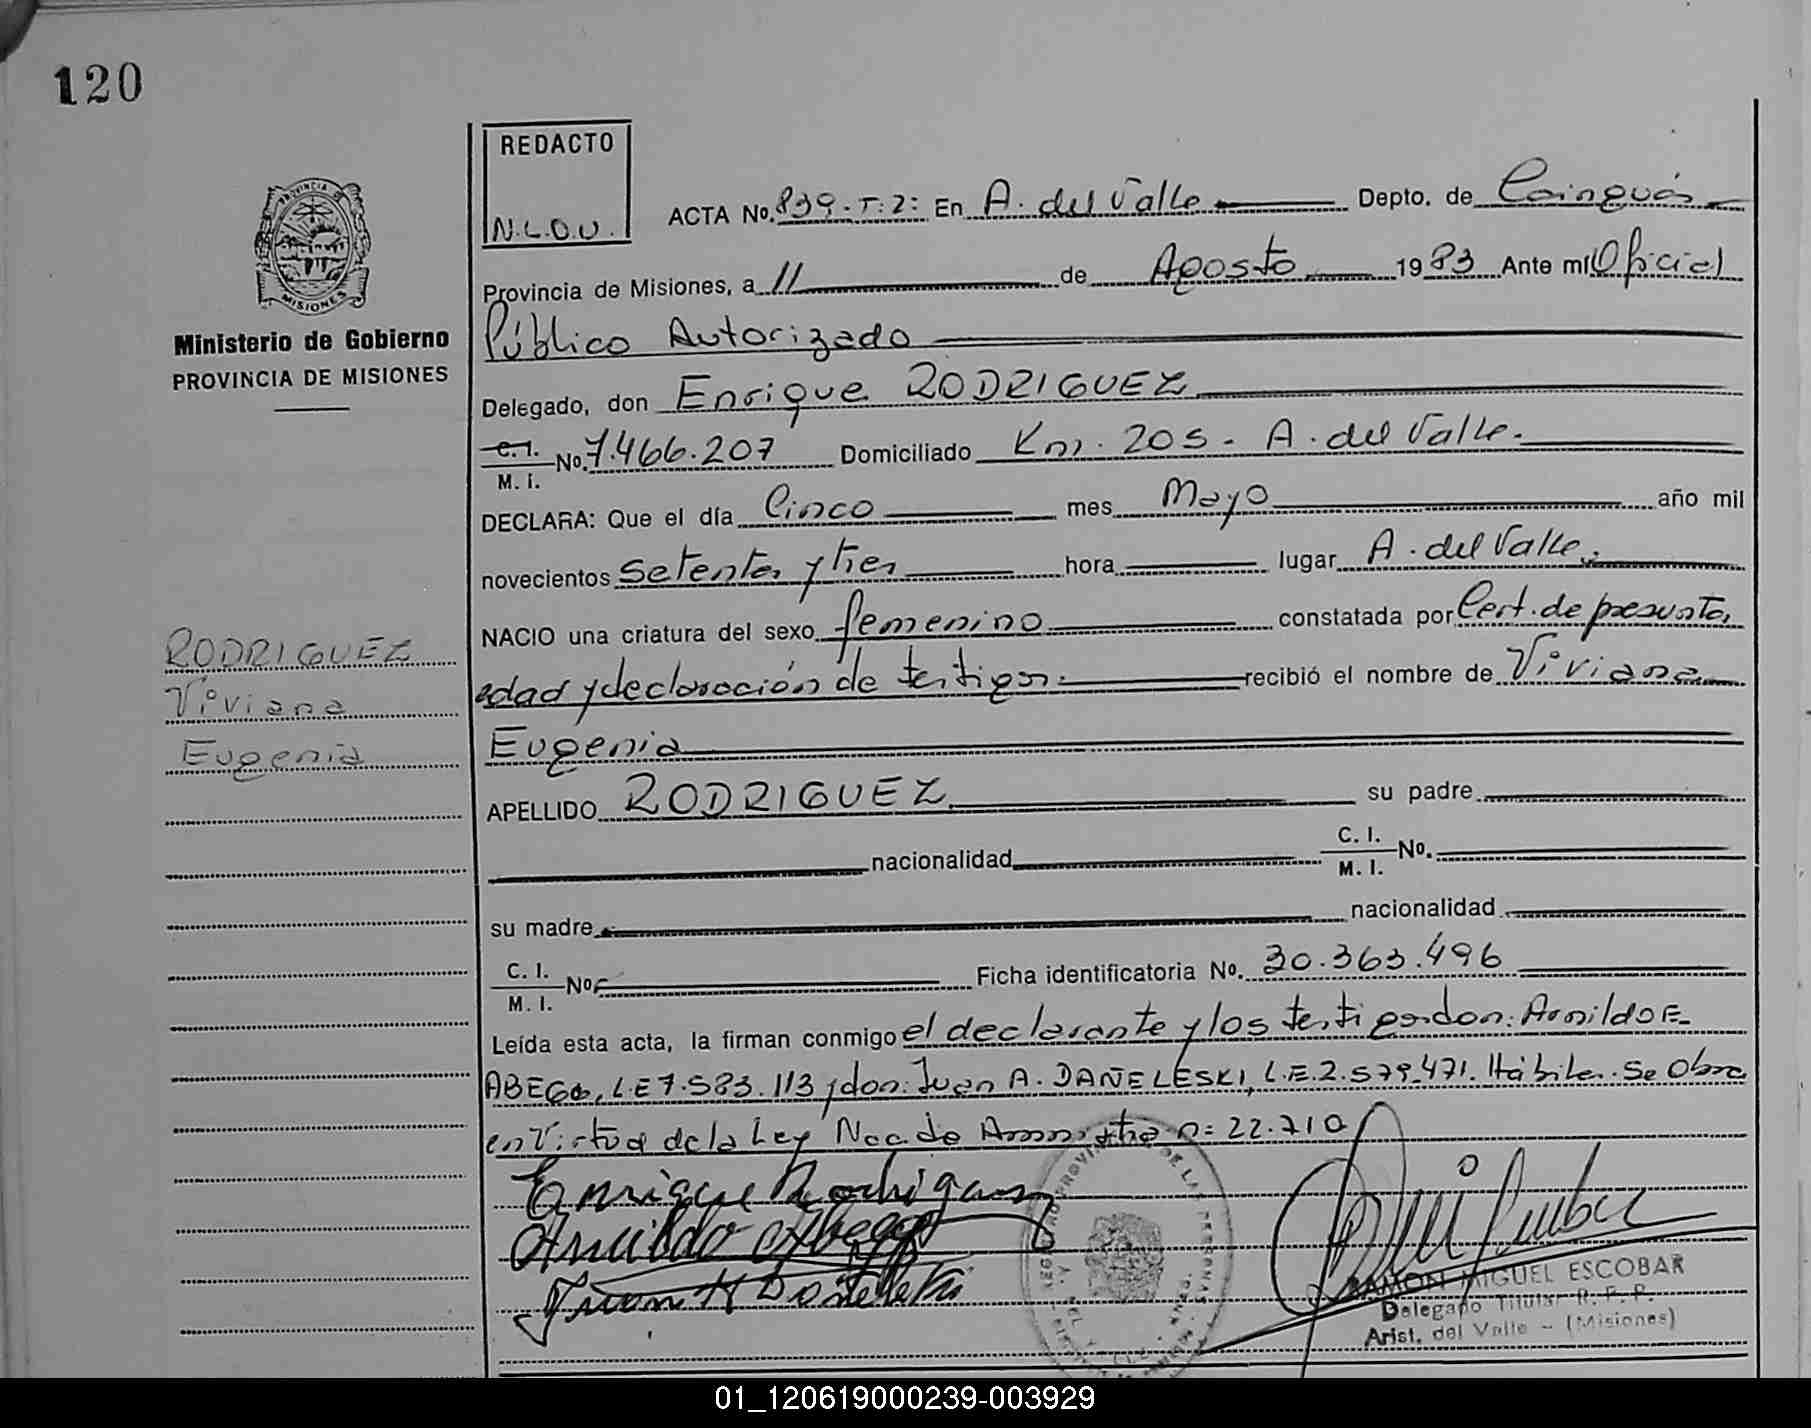 120
REDACTO
N.L.O.U.
PROVINCIA DE
MISIONES
Ministerio de Gobierno
PROVINCIA DE MISIONES
ACTA No. 839-T:2: En A. del Valle Depto. de Cainguás
Provincia de Misiones, a 11 de Agosto 1983 Ante mí Oficial
Público Autorizado
Delegado, don Enrique RODRIGUEZ
C.I. M. I. No. 7.466.207 Domiciliado Km. 205 - A. del Valle.
DECLARA: Que el día Cinco mes Mayo año mil
novecientos setenta y tres hora lugar A. del Valle.
NACIO una criatura del sexo femenino constatada por Cert. de presunta
edad y declaración de testigos. recibió el nombre de Viviana
Eugenia
APELLIDO RODRIGUEZ su padre
nacionalidad C. I. M. I. No.
su madre nacionalidad
C. I. M. I. No. Ficha identificatoria No. 30.363.496
Leída esta acta, la firman conmigo el declarante y los testigos don: Arnildo E.
ABEGG, L.E 7.583.113 y don: Juan A. DAÑELESKI, L.E. 2.579.471. Hábiles. Se Obra
en Virtud de la Ley Nac. de Amnistia n: 22.710
RODRIGUEZ
Viviana
Eugenia
Enrique Rodriguez
Arnildo Abegg
Juan A Dañeleski
RAMON MIGUEL ESCOBAR
Delegado Titular R. P. P.
Arist. del Valle - (Misiones)
01_120619000239-003929